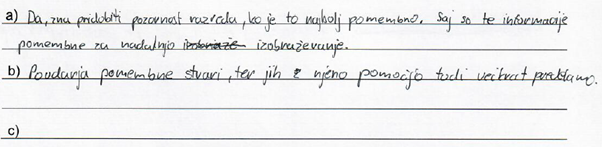 a) Da, zna pridobiti pozornost razreda, ko je to najbolj pomembno. Saj so te informacije
pomembne za nadalnjo izobraževanje.
b) Poudarja pomembne stvari, ter jih z njeno pomočjo tudi večkrat predelamo.
c)